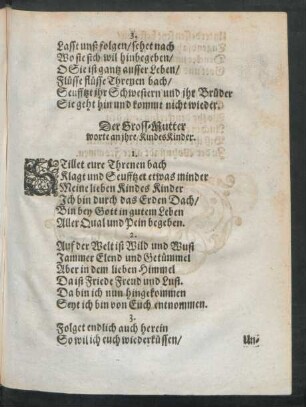 3.
Lasst unß folgen/ sehet nach
Wo sie sich wil hinbegeben/
O Sie ist gantz ausser Leben/
Flüsse flüsse Threnen bach/
Seufftzt ihr Schwestern und ihr Brüder
Sie geht hin und kommt nicht wieder.
Der Gross-Mutter
worte an jhre KindesKinder.
1.
Stillet eure Threnen bach
Klagt und Seufftzet etwas minder
Meine lieben Kindes Kinder
Ich bin durch das Erden Dach/
Bin bey Gott in gutem Leben
Aller Qual und Pein begeben.
2.
Auf der Welt ist Wild und Wust
Jammer Elend und Getümmel
Aber in dem lieben Himmel
Da ist Friede Freud und Lust.
Da bin ich nun hingekommen
Seyt ich bin von Euch entnommen.
3.
Folget endlich auch herein
So wil ich euch wiederküssen/
Un-